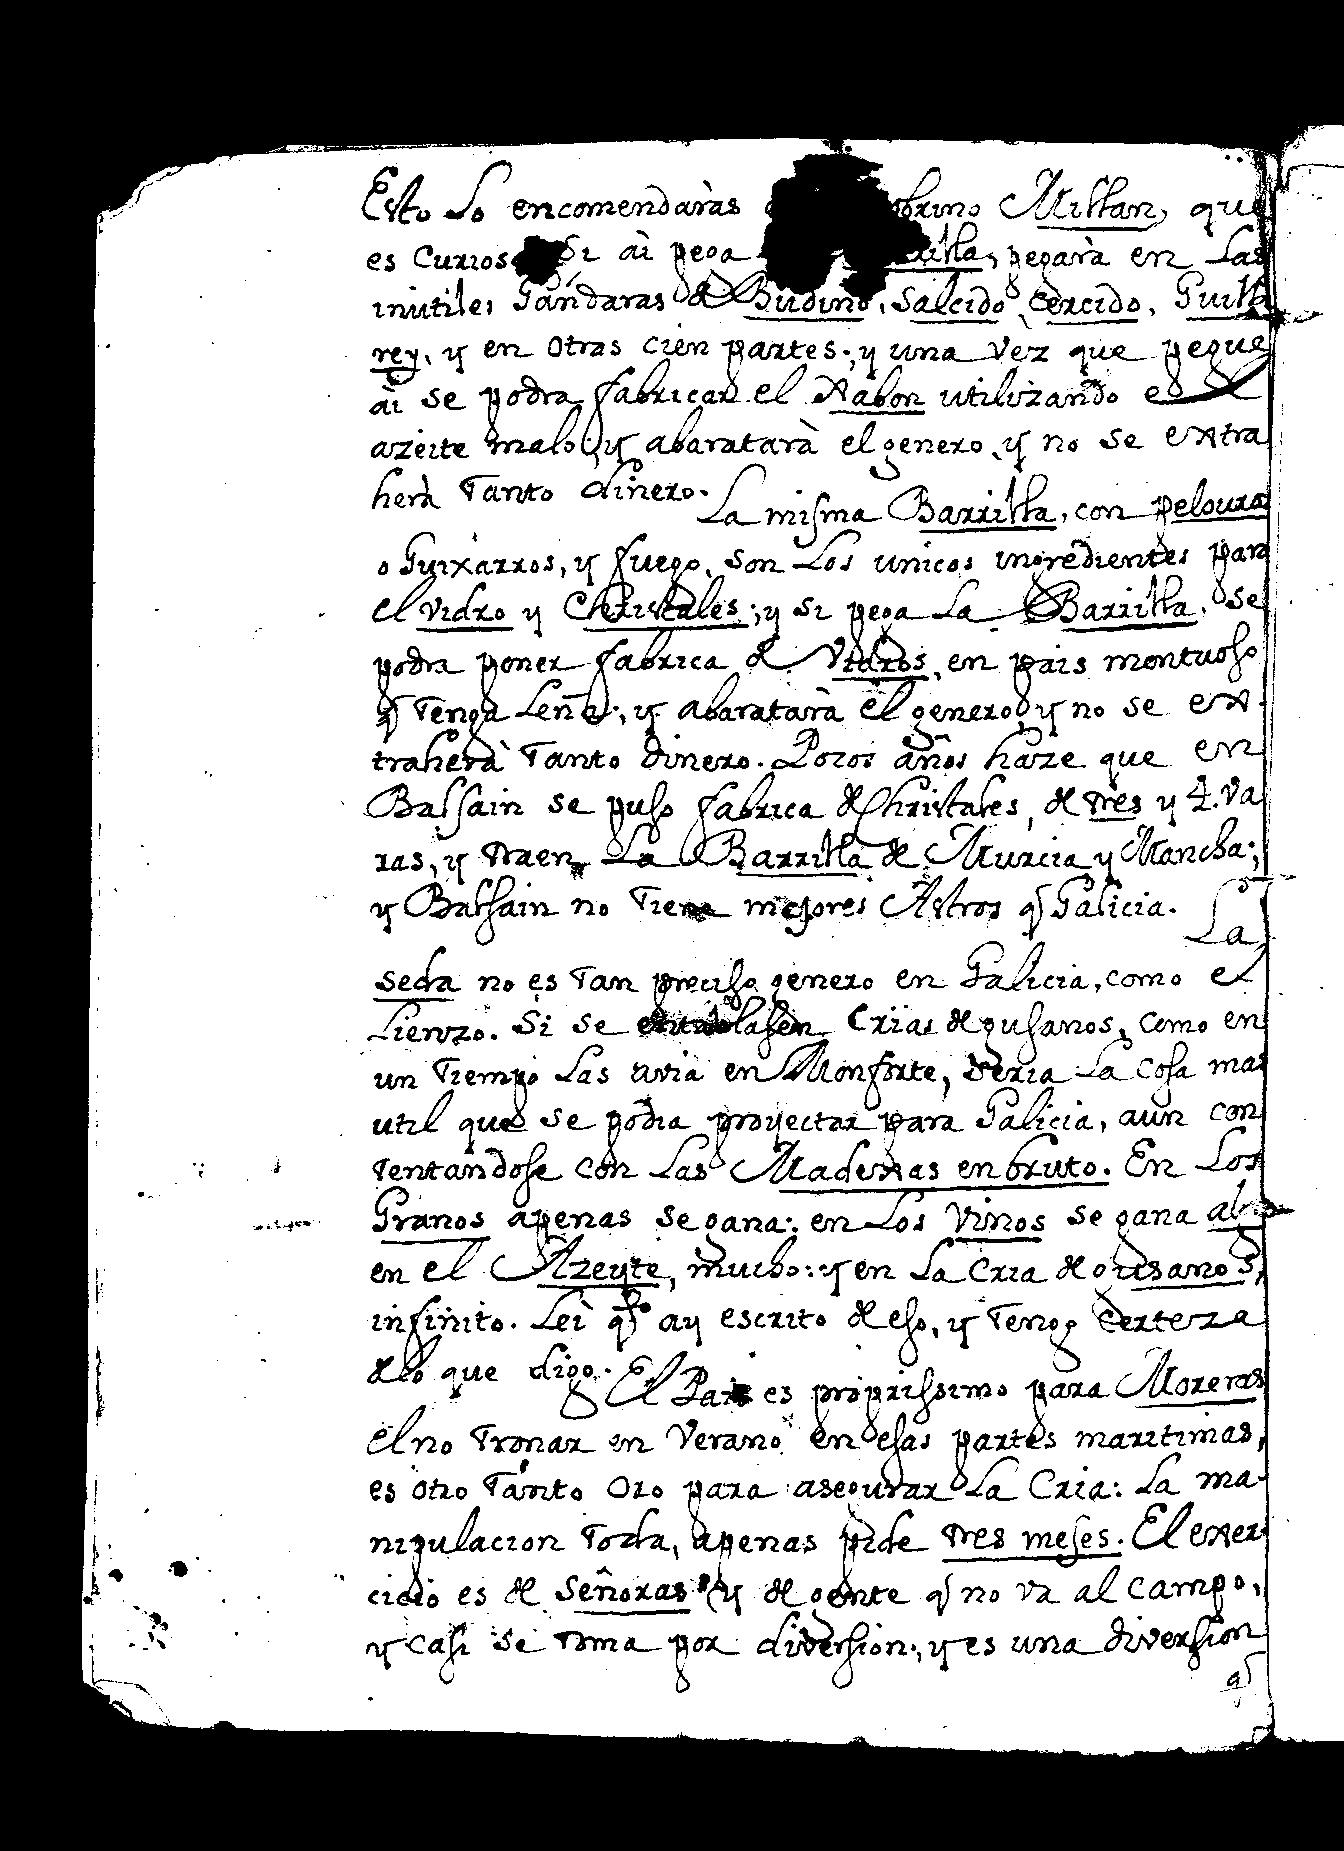 Esto Lo encomendaràs obrino Millan, que
es Curioso Si ai pega rilla, pegarà en Las
inutiles Gándaras de Budino, Salcido, Cercido, Guilla
rey, y en otras cien partes; y una vez que pegue
ai se podra fabricar el Xabon utilizando el
azeite malo, y abaratarà el genero, y no se extra
herà Tanto dinero.
La misma Barrilla, con peloura
o Guixarros, y fuego, son Los unicos ingredientes para
el vidro y Christales; y si pega La Barrilla, se
podra poner fabrica de Vidros, en pais montuoso
q Tenga Leña; y abaratarà el genero, y no se ex-
traherà Tanto dinero. Pocos años haze que en
Balsain se puso fabrica de Christales, de tres y 4. Va
ras, y traen La Barrilla de Murcia y Mancha;
y Balsain no Tiene mejores Astros q Galicia.
La
seda no es Tan preciso genero en Galicia, como el
Lienzo. Si se entablasen Crias de gusanos, como en
un Tiempo Las avia en Monforte, seria La Cosa mas
util que se podia proyectar para Galicia, aun con
Tentandose con Las Madexas en bruto. En Los
Granos apenas se gana: en Los Vinos se gana al
en el Azeyte, mucho: y en La Cria de gusanos,
infinito. Leì qto ay escrito de eso, y Tengo Certeza
de lo que digo.
El Pais es proprissimo para Moreras
El no Tronar en Verano en esas partes maritimas,
es otro Tanto Oro para asegurar La Cria: La ma-
nipulacion Toda, apenas pide tres meses. El exer-
cicio es de Señoras y de gente q no va al Campo,
y Casi se toma por diversion; y es una diversion
q